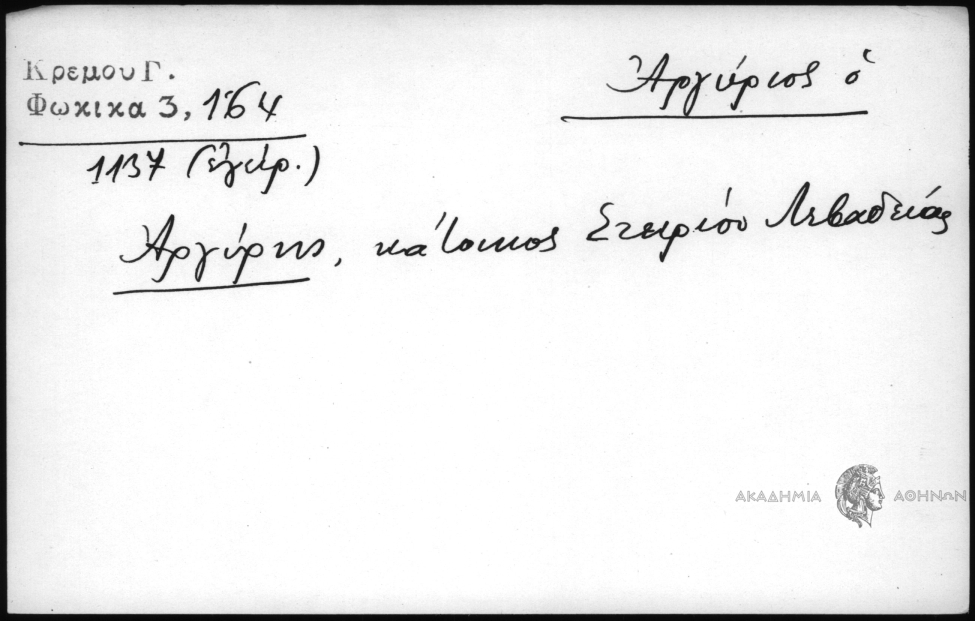 Κρεμου Γ.
Φωκικα 3, 164
Ἀργύριος ὁ
1137 (ἔγγρ.)
Ἀργύρης, κάτοικος Στειρίου Λεβαδείας
ΑΚΑΔΗΜΙΑ ΑΘΗΝΩΝ